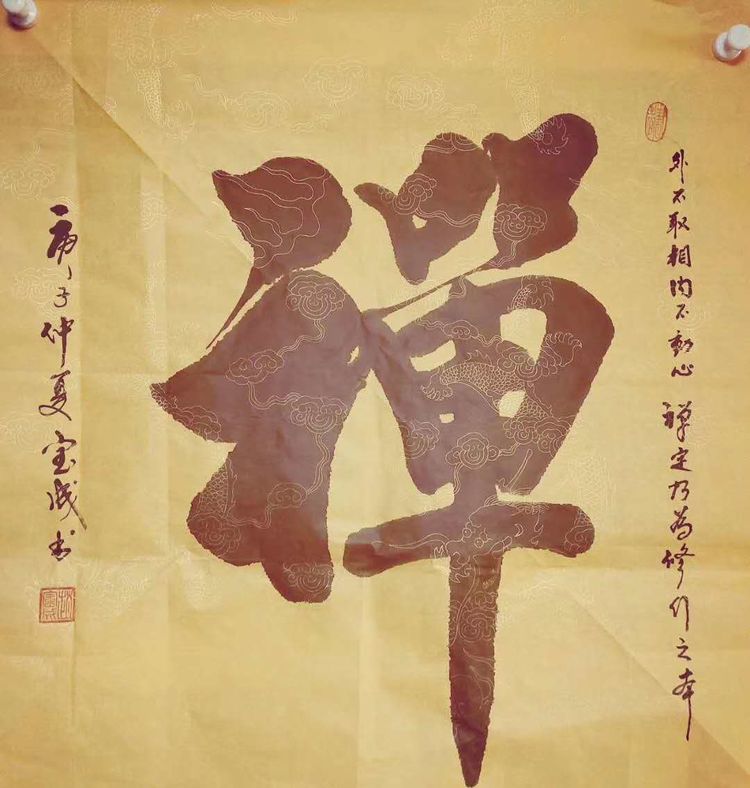 外不取相内不動心禅定乃為修行之本
禅
庚子仲夏宝成书